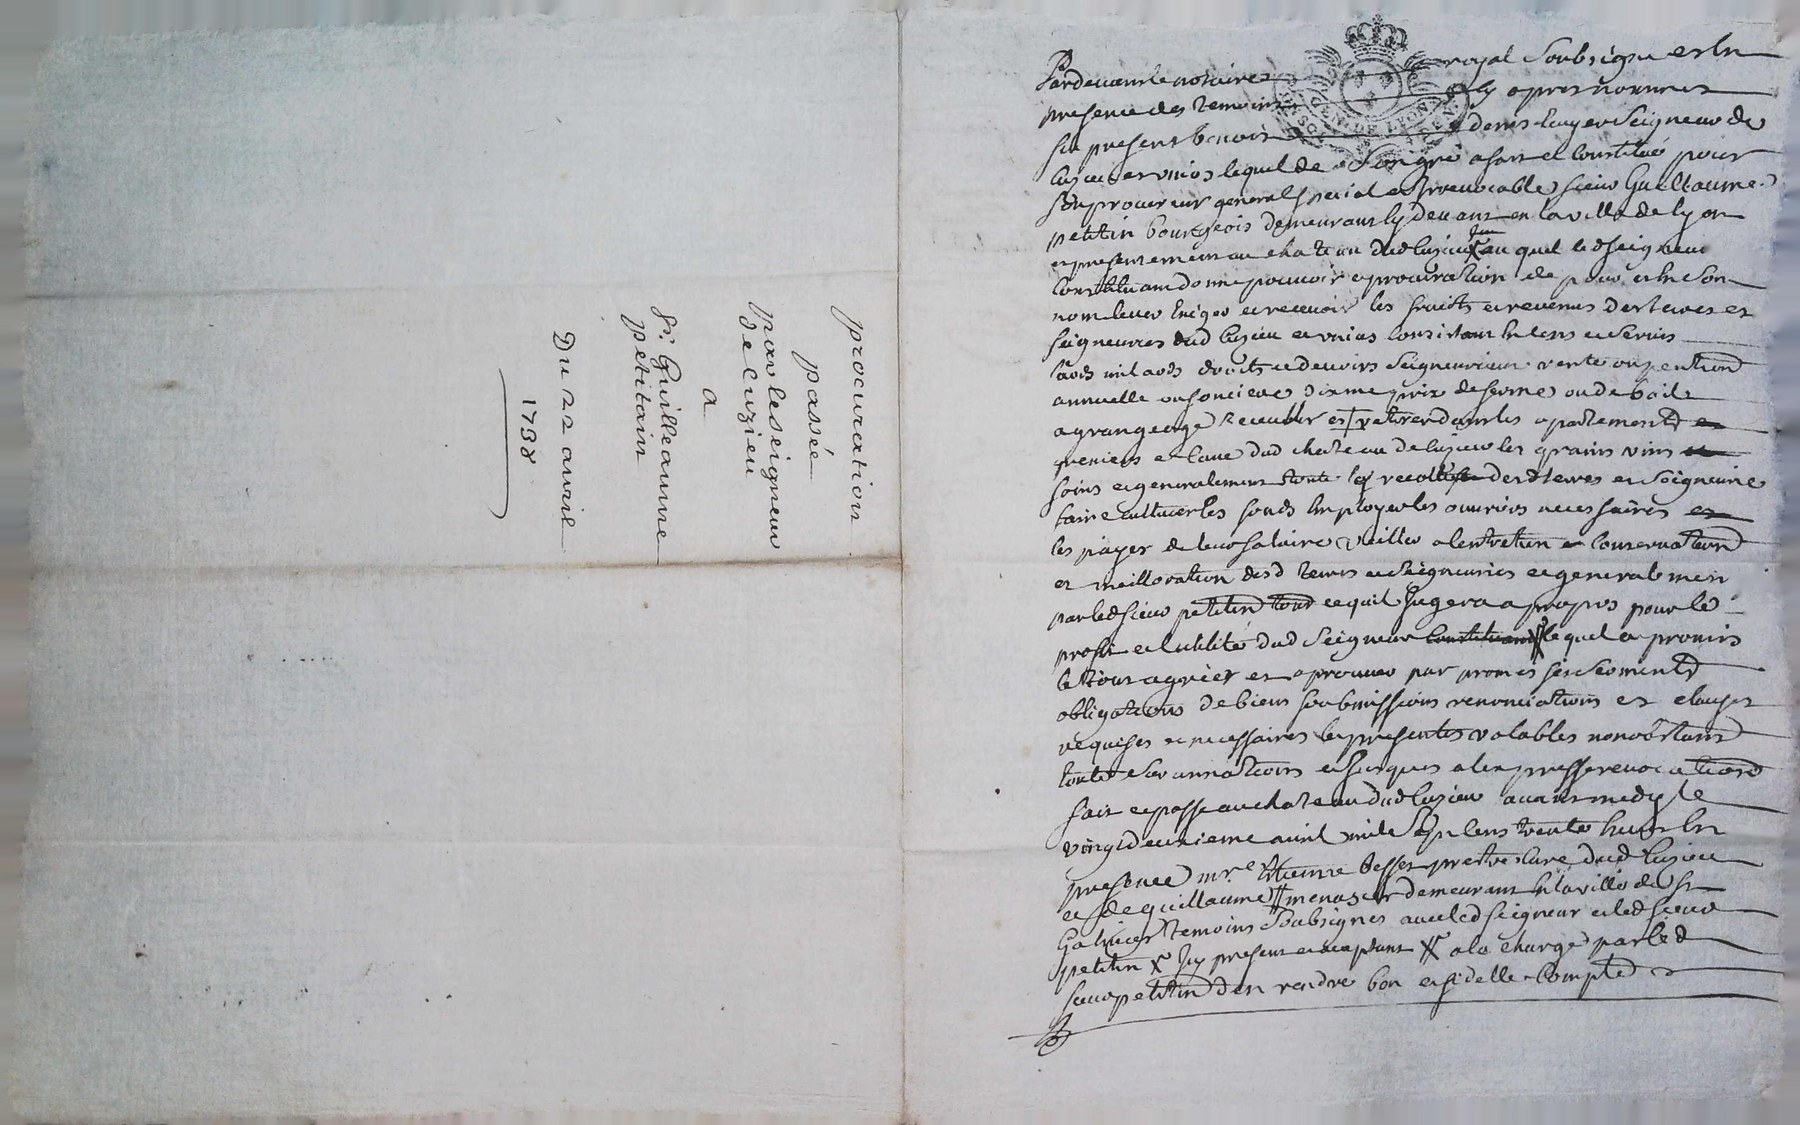 procuration
passée
par le seigneur
de cuzieu
a
Sr. Guilleaume
petitain
Du 22 avril
1738
Pardevant le notaire royal soubsigne et en
presence des temoins cy apres nommes
fut present benoit denis Escuyer seigneur de
cuzieu et unias lequel de son gré a fait et constitué pour
son procureur general special et irrevocable sieur Guillaume
petitin bourgeois demeurant cy devant en la ville de lyon
et presentement au chateau dud cuzieu x auquel led seigneur
constituant donne pouvoir et procuration de pour et en son
nom lever Exiger et recevoir les fruits et revenus des terres et
seigneuries dud cuzieu et unias consistant en cens et servis
laods milaods droits et devoirs seigneuriaux rente ou pention
annuelle ou fonciere dixme prix de ferme ou de bail
a grangeage recueillir et retirer dans les apartements et
greniers et cave dud chateau de cuzieu les grains vins et
foins et generalement toute les recoltes desd terres et seigneurie
faire cultiver les fonds Employer les ouvriers necessaires et
les payer de leur salaire veiller a lentretien et conservation
et meilloration desd terres et seigneuries et generalement
par led sieur petitin tout ce quil jugera a propos pour le
profit et lutilité dud seigneur constituant lequel a promis
le tout agréer et aprouver par promes ses serments
obligations de biens soubmissions renonciations et clauses
requises et necessaires les presentes valables nonobstant
toute surannation et jusques a lexpresse revocation
fait et passe au chateau dud cuzieu avant midy le
vingt deuxieme avril mile sept cens trente huit En
presence mre. Etienne besset pretre cure dud cuzieu
et de guillaume menaser demeurant En la ville de st
Galmier temoins soubsignes avec led seigneur et led sieur
petitin x icy present et aceptant x a la charge par led
sieur petitin den rendre bon et fidelle compte